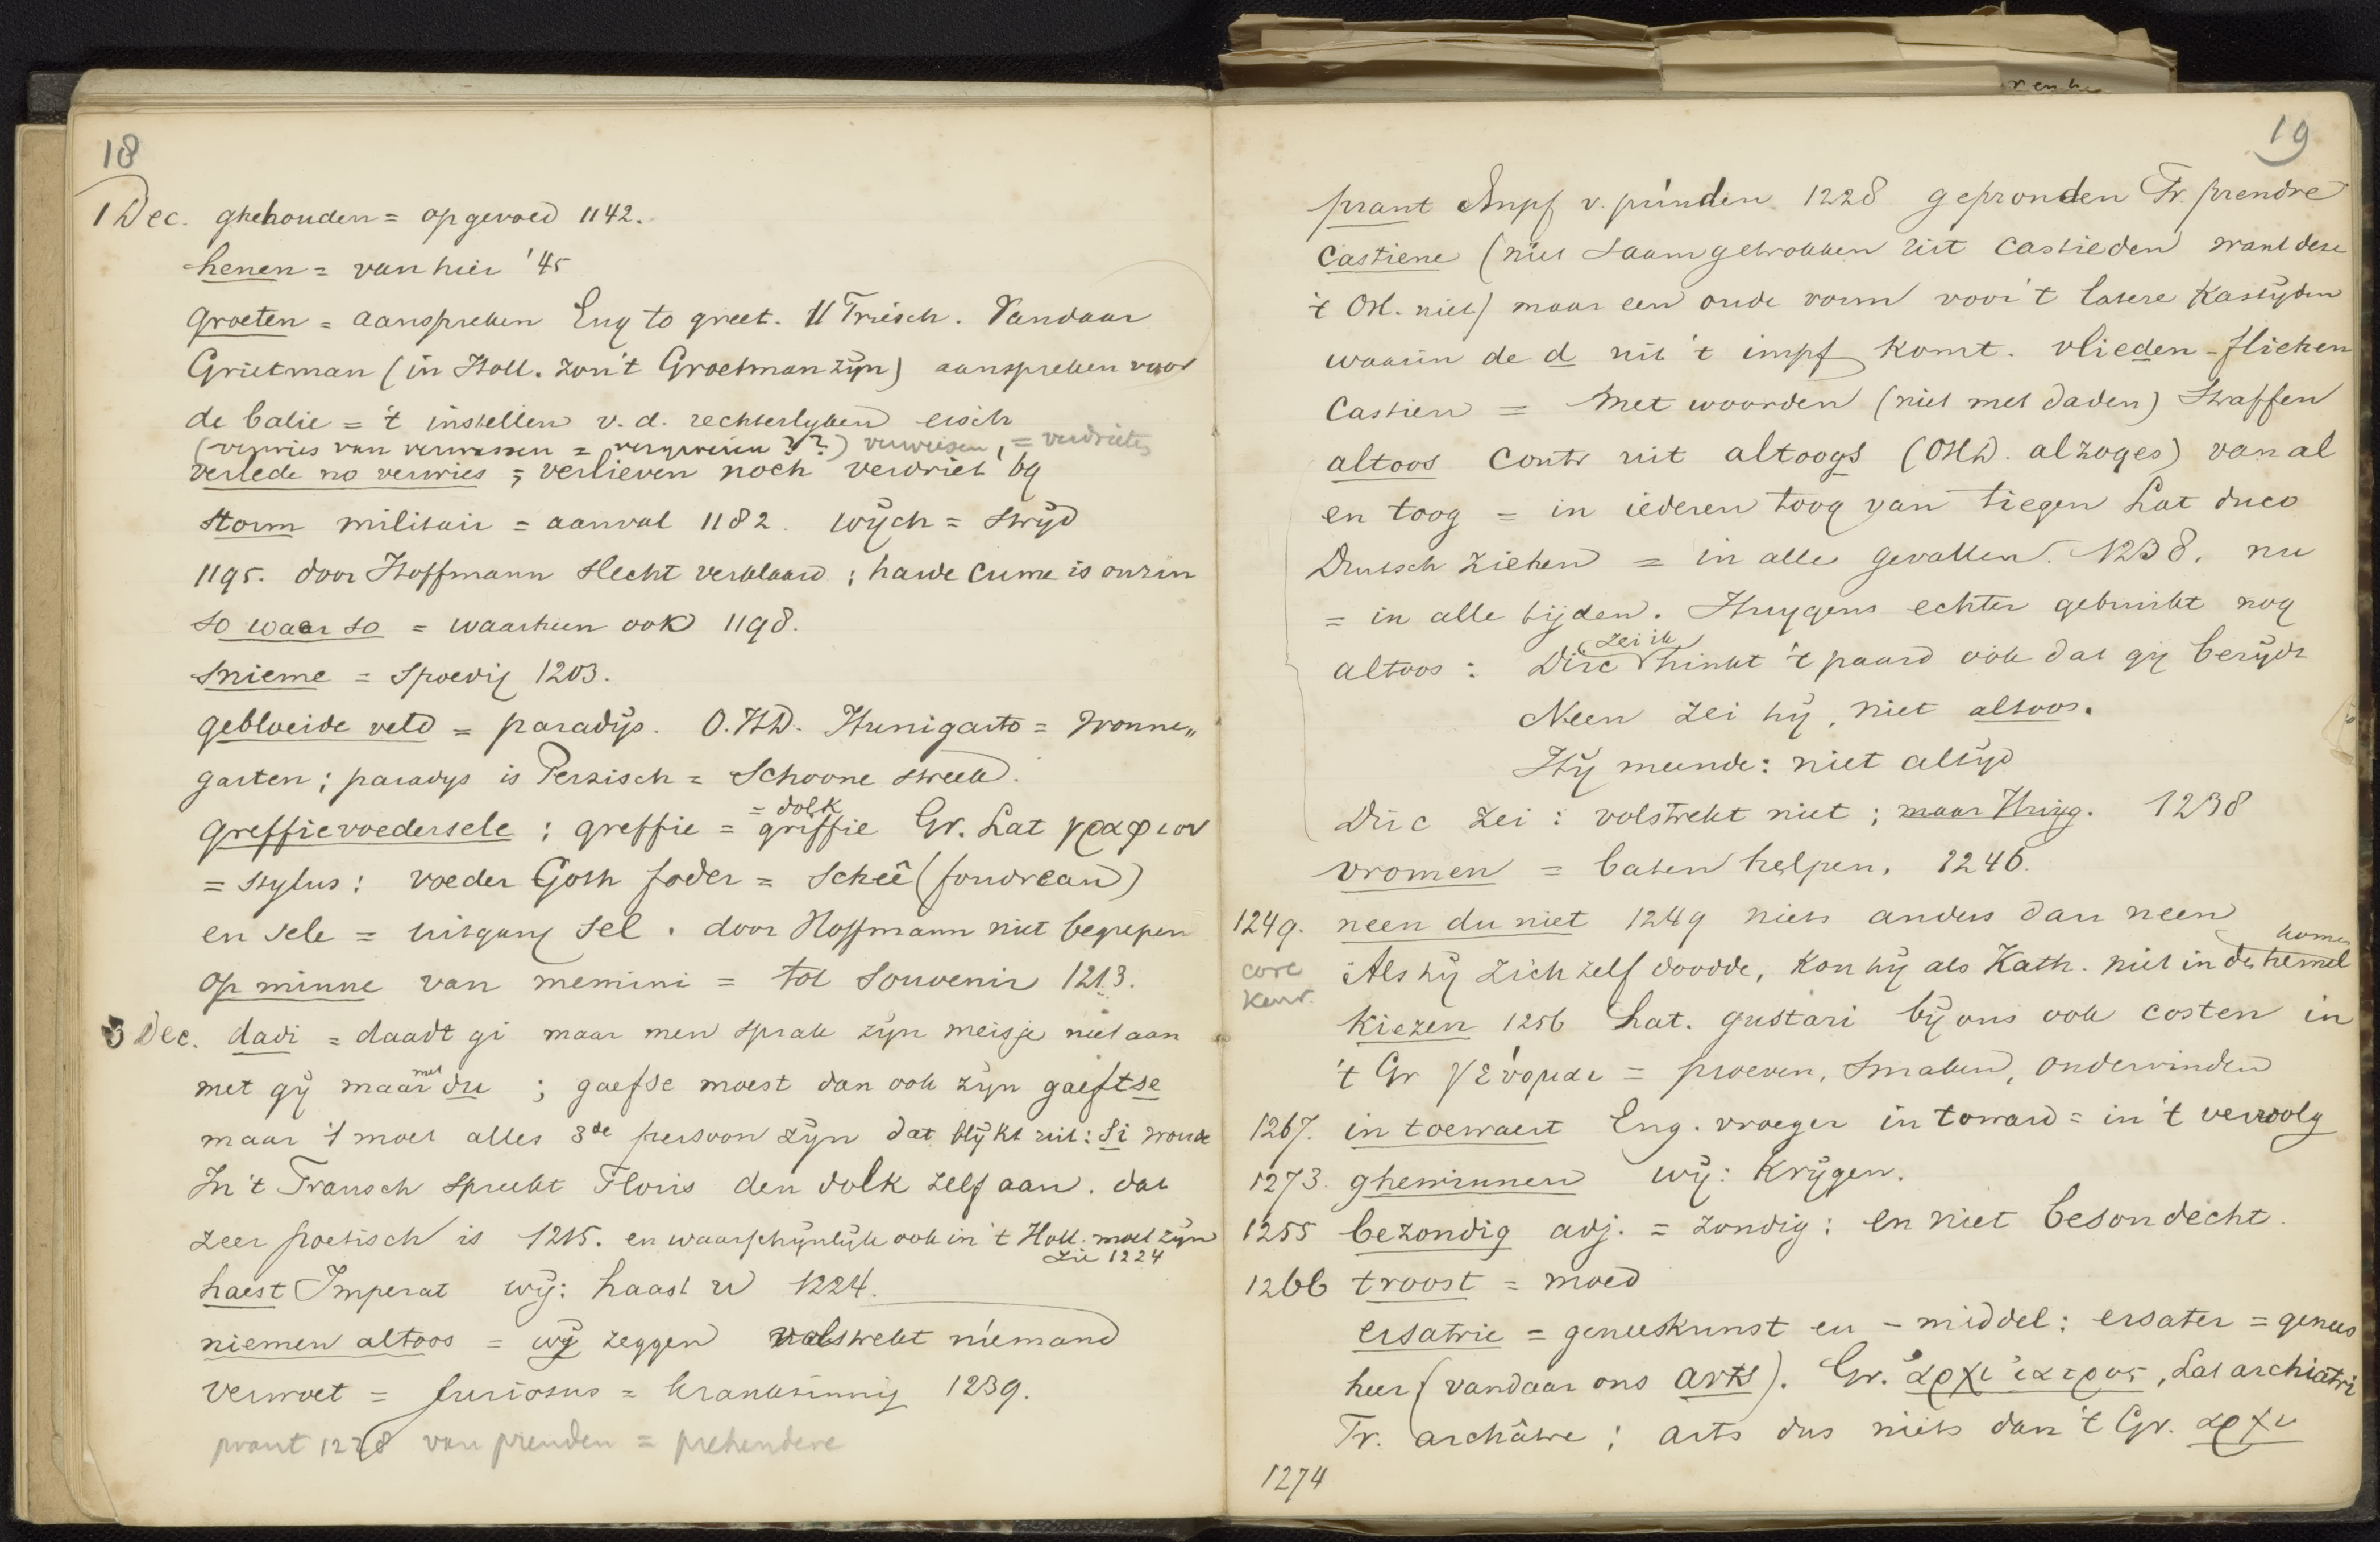 18
1 Dec. ghehouden = opgevoed 1142.
henen = van hier '45
groeten = aanspreken Eng to greet. Friesch. Vandaar
Grietman (in Holl. zou 't Groetman zijn) aanspreken voor
de balie = 't instellen v. d. rechterlyken eisch
(verwies van verwassen = ?? ) verwiesen, = verdrieten
verlede no verwies = verlieven noch verdriet by
storm militair = aanval 1182. wÿch = strÿd
1195. door Hoffmann slecht verklaard; harde cume is onzin
so waer so = waarheen ook 1198.
snieme = spoedig 1203.
gebloeide veld = paradÿs. O.HD. Hunigarto = Wonne„
garten; paradys is Perzisch = Schoone streek.
= dolk
greffievoedersele : greffie = griffie Gr. Lat γραφιον
= stylus: voeder Goth foder = scheê (foudreau)
en sele = uitgang sel. door Hoffmann niet begrepen
op minne van memini = tot souvenir 1213.
3 Dec. dadi = daadt gi maar men sprak zÿn meisje niet aan
met gÿ maar met du ; gaefse moest dan ook zÿn gaeftse
maar 't moet alles 3de persoon zÿn dat blÿkt uit: Si woude
In 't Fransch spreekt Floris den dolk zelf aan. dat
zeer poetisch is 1215. en waarschÿnlÿk ook in 't Holl. moet zÿn
zie 1224
haest Imperat wÿ: haast u 1224.
niemen altoos = wÿ zeggen volstrekt niemand
verwoet = furiosus = krankzinnig 1239.
prant 1228 van prenden = prehendere
19
prant Impf v. prinden 1228 gepronden Fr. prendre
castiene (niet saamgetrokken uit castieden want dese
't OH. niet) maar een oude vorm voor 't latere Kastÿden
waarin de d uit 't impf komt. vlieden - fliehen
Castien = met woorden (niet met daden) straffen
altoos contr uit altoogs (OHD. alzoges) van al
en toog = in iederen toog van tiegen Lat duco
Duitsch ziehen = in alle gevallen. 1238. nu
= in alle tijden. Huygens echter gebruikt nog
zei ik
altoos : Dirc hinkt 't paard ook dat gy berÿdt
Neen zei hÿ, niet altoos.
Hÿ meende: niet altÿd
Dirc zei : volstrekt niet ; maar Huyg. 1238
vromen = baten helpen. 1246.
1249. neen du niet 1249 niets anders dan neen
komen
core Als hÿ zich zelf doodde, kon hÿ als Kath. niet in de hemel
keur.
kiezen 1256 Lat. gustari bÿ ons ook costen in
't Gr γεύομαι = proeven, smaken, ondervinden
1267. in toewaert Eng. vroeger in toward = in 't vervolg
1273. ghewinnen wÿ: krÿgen.
1255 bezondig adj. = zondig: en niet besondecht.
1266 troost = moed
ersatrie = geneeskunst en - middel: ersater = genees
heer (vandaar ons arts). Gr. ἀρχι ἰατρος, Lat archiatri
Fr. archiâtre ; arts dus niets dan 't Gr. αρχι
1274